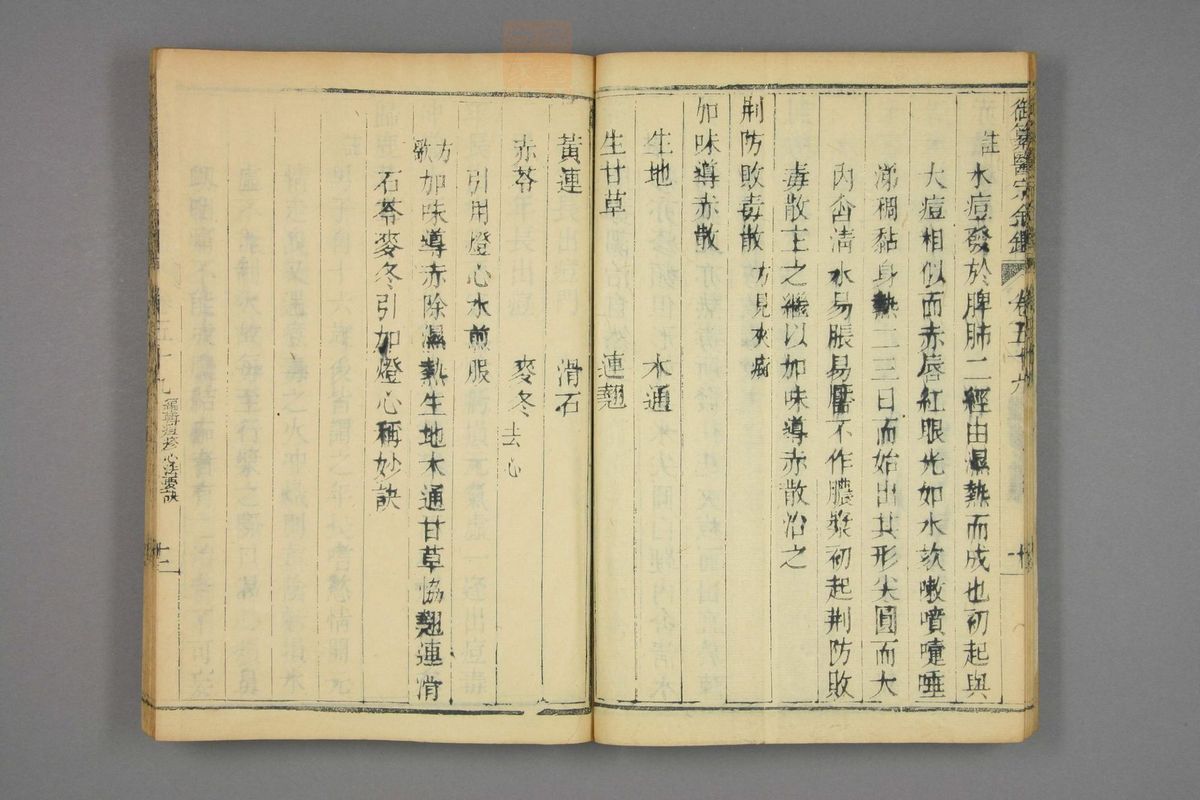 御纂醫宗金鑑 卷五十九
註 水痘發於脾肺二經由濕熱而成也初起與
大痘相似而赤唇紅眼光如水欬嗽噴嚏唾
涕稠黏身熱二三日而始出其形尖圓而大
內含清水易脹易靨不作膿漿初起荆防敗
毒散主之繼以加味導赤散治之
荆防敗毒散 方見夾癍
加味導赤散
生地 木通
生甘草 連翹
黃連 滑石
赤苓 麥冬 去心
引用燈心水煎服
方歌 加味導赤除濕熱生地木通甘草恊翹連滑
石苓麥冬引加燈心稱妙訣
卷五十九 編輯痘疹心法要訣